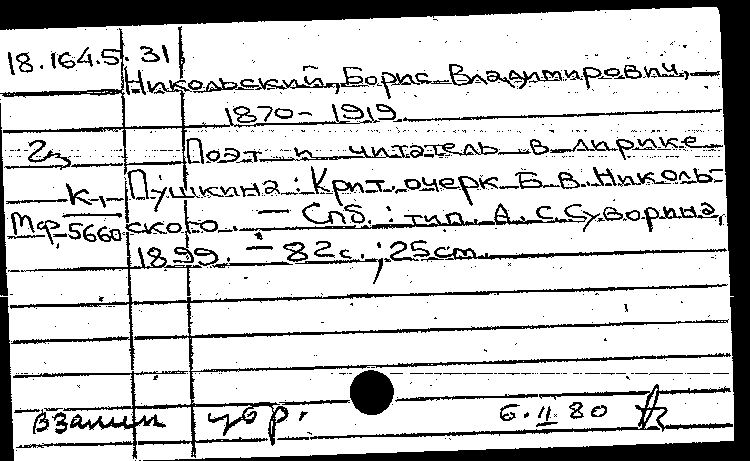 18.164.5.31
Никольский, Борис Владимирович,
1870-1919
2з Поэт и читатель в лирике
К-1 Пушкина: Крит. очерк Б. В. Николь-
Мф. 5660 ского. — Спб. : тип. А. С. Суворина,
1899. — 82 с. ; 25 cm.
взаим
6.II 80